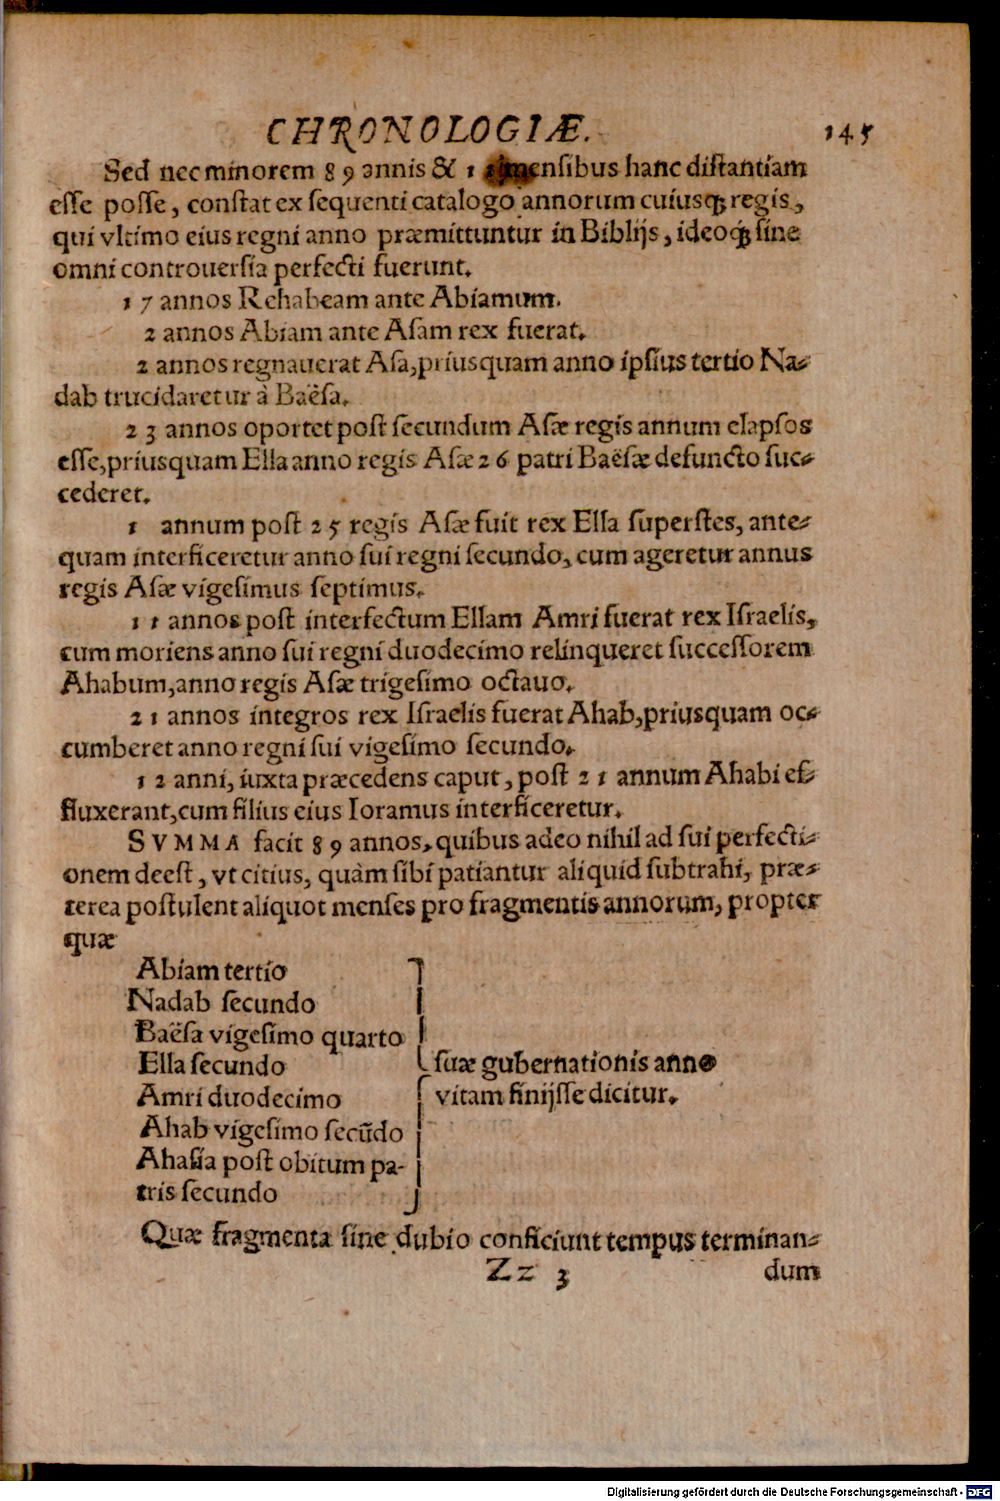 CHRONOLOGIÆ. 145
Sed nec minorem 89 annis & mensibus hanc distantiam
esse posse, constat ex sequenti catalogo annorum cuiusq; regis,
qui vltimo eius regni anno præmittuntur in Biblijs, ideoq; sine
omni controuersia perfecti fuerunt.
17 annos Rehabeam ante Abiamum.
2 annos Abiam ante Asam rex fuerat.
2 annos regnauerat Asa, priusquam anno ipsius tertio Na-
dab trucidaretur à Baësa.
23 annos oportet post secundum Asæ regis annum elapsos
esse, priusquam Ella anno regis Asæ 26 patri Baësæ defuncto suc-
cederet.
1 annum post 25 regis Asæ fuit rex Ella superstes, ante-
quam interficeretur anno sui regni secundo, cum ageretur annus
regis Asæ vigesimus septimus.
11 annos post interfectum Ellam Amri fuerat rex Israelis,
cum moriens anno sui regni duodecimo relinqueret successorem
Ahabum, anno regis Asæ trigesimo octauo.
21 annos integros rex Israelis fuerat Ahab, priusquam oc-
cumberet anno regni sui vigesimo secundo.
12 anni, iuxta præcedens caput, post 21 annum Ahabi ef-
fluxerant, cum filius eius Ioramus interficeretur.
SVMMA facit 89 annos, quibus adeo nihil ad sui perfecti-
onem deest, vt citius, quàm sibi patiantur aliquid subtrahi, præ-
terea postulent aliquot menses pro fragmentis annorum, propter
quæ
Abiam tertio
Nadab secundo
Baësa vigesimo quarto
Ella secundo
Amri duodecimo
Ahab vigesimo secūdo
Ahasia post obitum pa-
tris secundo
suæ gubernationis anno
vitam finijsse dicitur.
Quæ fragmenta sine dubio conficiunt tempus terminan-
Zz 3 dum
Digitalisierung gefördert durch die Deutsche Forschungsgemeinschaft - DFG